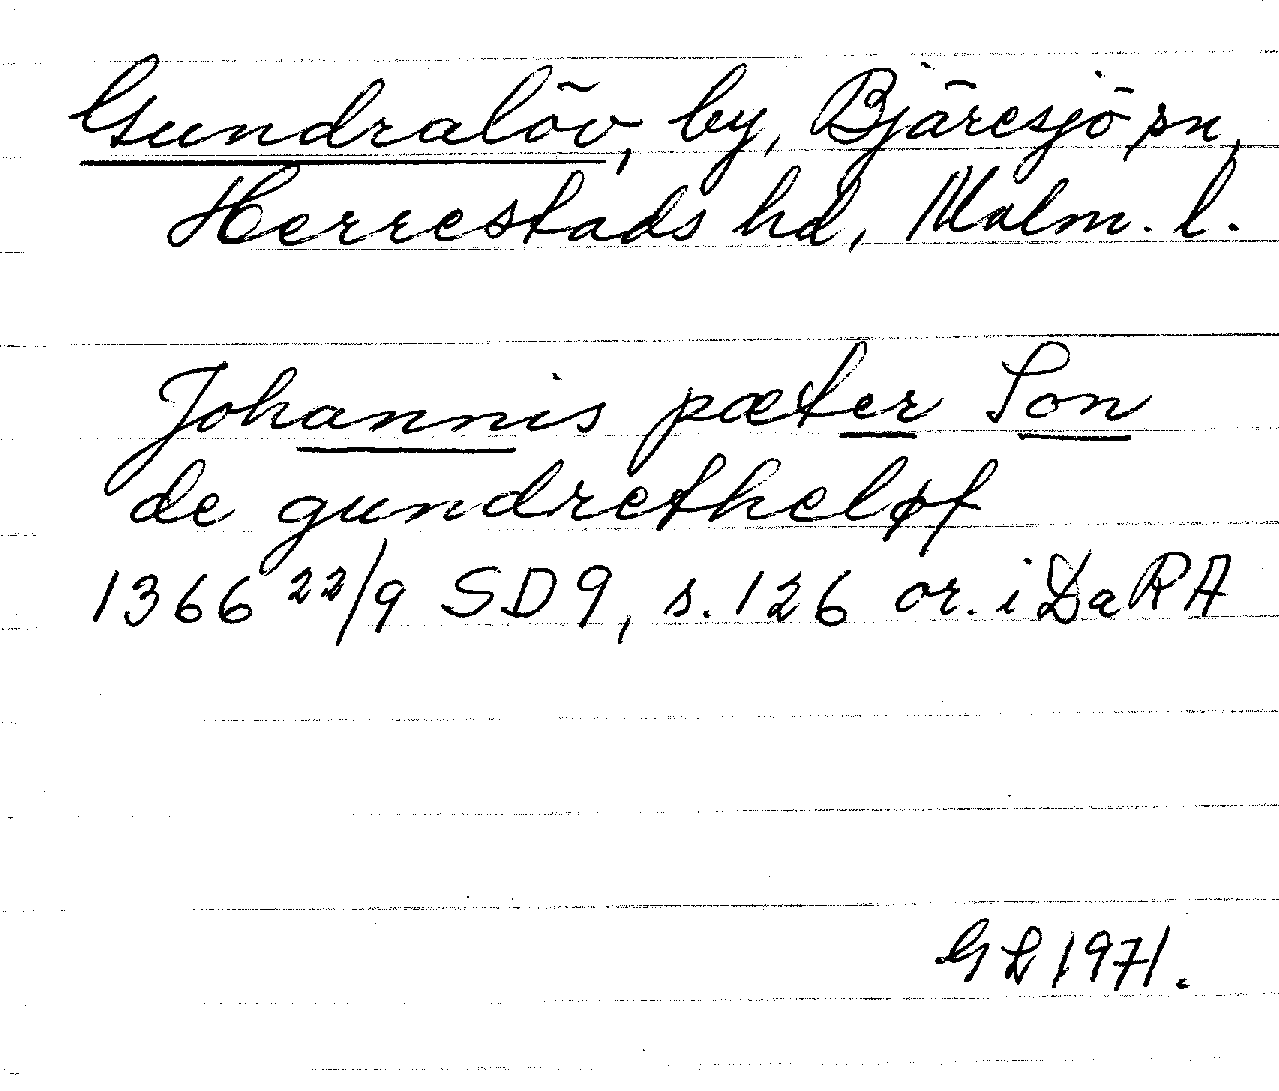 Gundralöv, by, Bjäresjö sn,
Herrestads hd, Malm. l.
Johannis pæter Son
de gundretheløf
1366 22/9 SD9, s. 126 or. i DaRA
GL 1971.